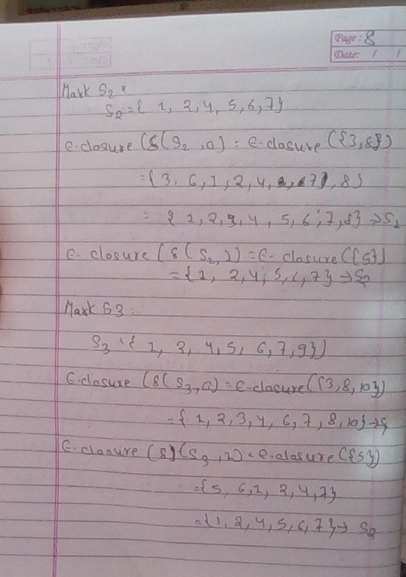 Page: 8
Date: / /
Mark S2:
S2 = { 1, 2, 4, 5, 6, 7}
ε-closure (δ(S2, a) = ε-closure ({3,8})
= {3, 6, 1, 2, 4, 7, 8}
= { 1, 2, 3, 4, 5, 6, 7, 8} → S1
ε-closure (δ(S2, 1) = ε-closure ({5})
= {1, 2, 4, 5, 6, 7} → S2
Mark S3.
S3 = { 1, 2, 4, 5, 6, 7, 9}
ε-closure (δ(S3, a) = ε-closure ({3, 8, 10})
= { 1, 2, 3, 4, 6, 7, 8, 10} →
ε-closure (δ)(S3, 1) = ε-closure ({5})
= {5, 6, 1, 2, 4, 7}
= {1, 2, 4, 5, 6, 7} → S2